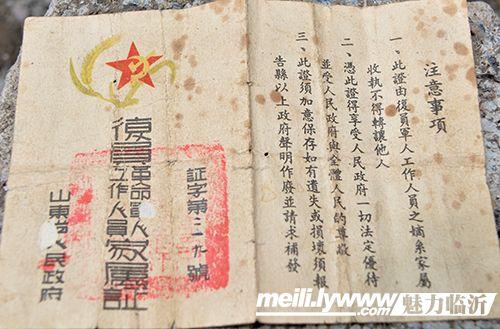 注意事項
一、此證由復員軍人工作人員之嫡系家屬
收執不得轉讓他人
二、憑此證得享受人民政府一切法定優待
並受人民政府與全體人民的尊敬
三、此證須加意保存如有遺失或損壞須報
告縣以上政府聲明作廢並請求補發
証字第九號
復員革命軍人工作人員家屬証
山東省人民政府
meili.lywww.com
魅力临沂